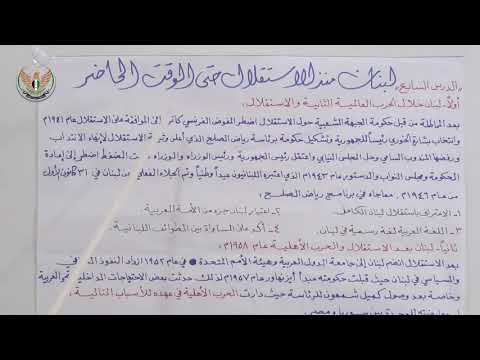 الدرس السابع، لبنان منذ الاستقلال حتى الوقت الحاضر
أولاً، لبنان خلال الحرب العالمية الثانية والاستقلال.
بعد المماطلة من قبل حكومة الجبهة الشعبية حول الاستقلال اضطر المفوض الفرنسي إلى الموافقة على الاستقلال عام ١٩٤١م
وانتخاب بشارة الخوري رئيساً للجمهورية وتشكيل حكومة برئاسة رياض الصلح الذي أعلن الاستقلال لإنهاء الانتداب
ورفضها المندوب السامي وحل المجلس النيابي واعتقل رئيس الجمهورية ورئيس الوزراء والوزراء الضغط اضطر إلى إعادة
الحكومة ومجلس النواب والدستور عام ١٩٤٣م الذي اعتبره اللبنانيون عيداً وطنياً وتم الجلاء الفعلي من لبنان في ٣١ كانون الأول
من عام ١٩٤٦م. مما جاء في برنامج رياض الصلح:
١- الاعتراف باستقلال لبنان الكامل. ٢- اعتبار لبنان جزء من الأمة العربية.
٣- اللغة العربية لغة رسمية في لبنان ٤- أكد على المساواة بين الطوائف اللبنانية
ثانياً، لبنان بعد الاستقلال والحرب الأهلية عام ١٩٥٨م
بعد الاستقلال انضم لبنان إلى جامعة الدول العربية وهيئة الأمم المتحدة في عام ١٩٥٢م ازداد النفوذ
والسياسي في لبنان حيث قبلت حكومته مبدأ أيزنهاور عام ١٩٥٧م لذلك حدثت بعض الاحتجاجات الداخلية العربية
وخاصة بعد وصول كميل شمعون للرئاسة حيث دارت الحرب الأهلية في عهده للأسباب التالية:
للوحدة بين سوريا ومصر